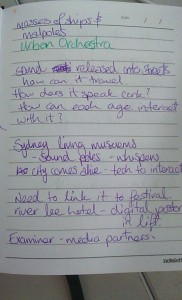 masses of ships &
maypoles
Urban Orchestra
Sound released into streets
how can it travel
How does it speak cork?
How can each age interact
with it?
Sydney living museums
- Sound poles - whispers
city comes alive - tech to interact
Need to link it to festival
river lee hotel - digital poster
in lift.
Examiner - media partners.